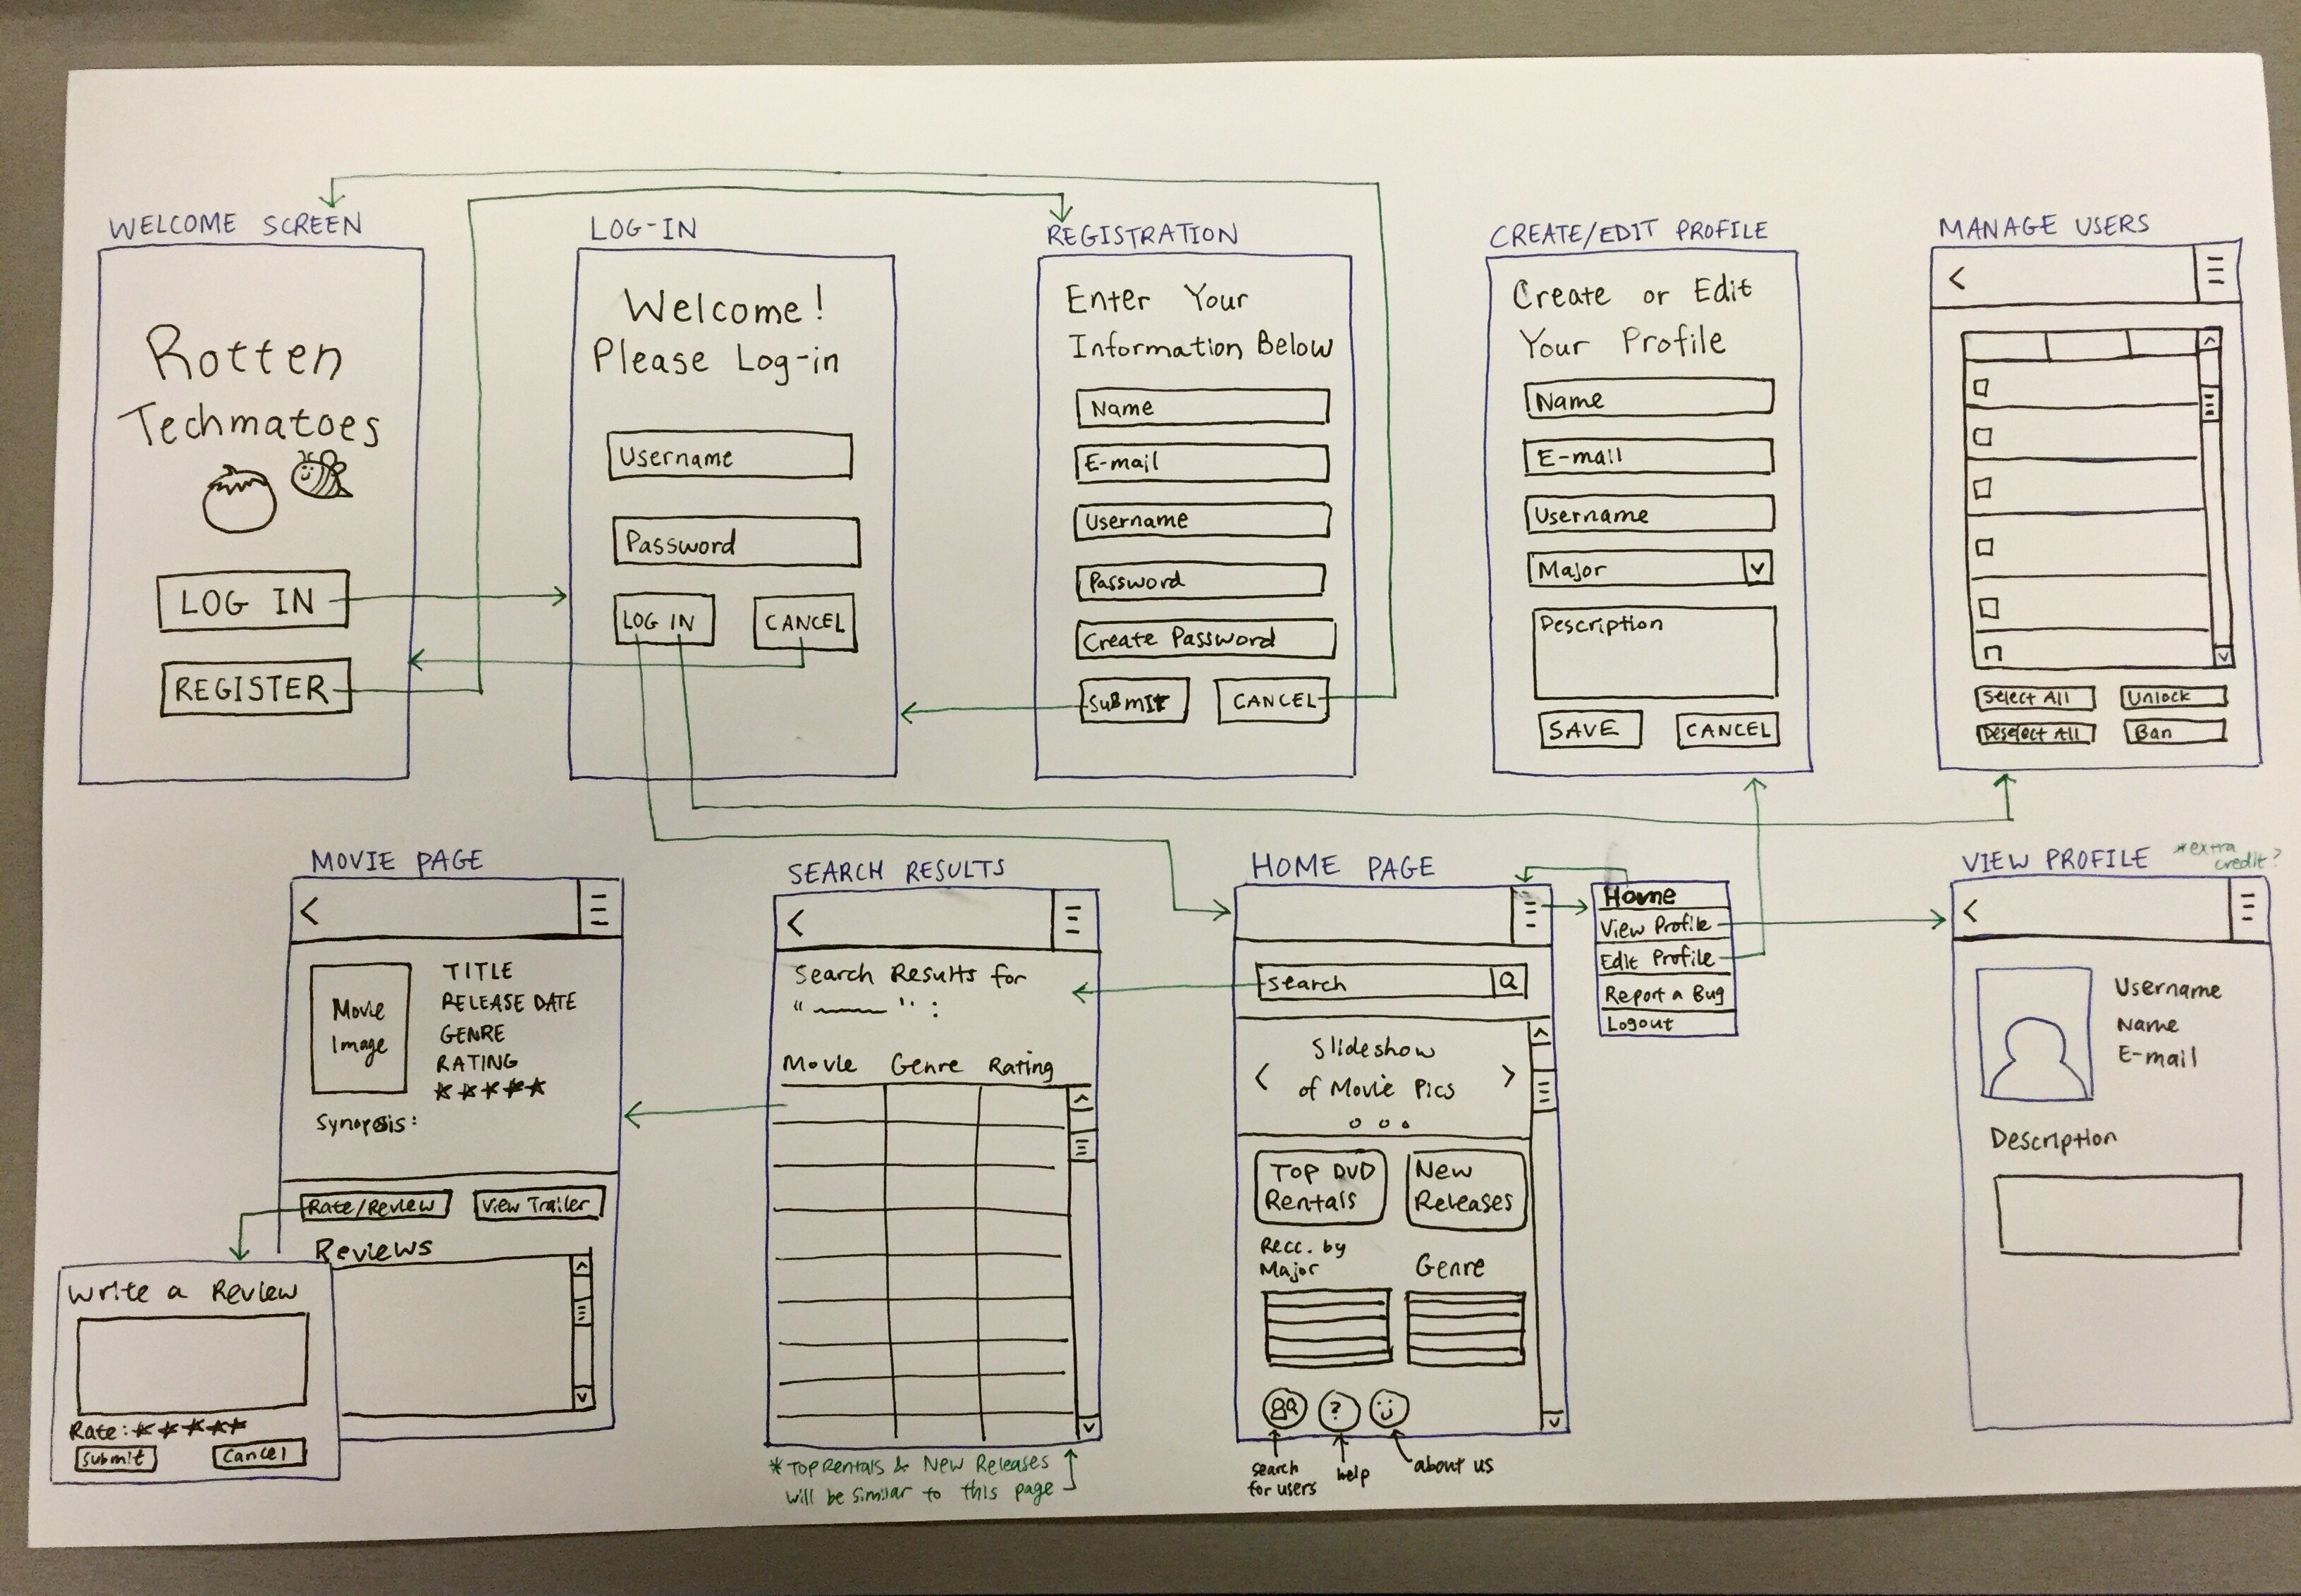 WELCOME SCREEN
Rotten
Techmatoes
LOG IN
REGISTER
LOG-IN
Welcome!
Please Log-in
Username
Password
LOG IN
CANCEL
REGISTRATION
Enter Your
Information Below
Name
E-mail
Username
Password
Create Password
SUBMIT
CANCEL
CREATE/EDIT PROFILE
Create or Edit
Your Profile
Name
E-mail
Username
Major
Description
SAVE
CANCEL
MANAGE USERS
Select All
Unlock
Deselect All
Ban
MOVIE PAGE
Movie
Image
TITLE
RELEASE DATE
GENRE
RATING
Synopsis:
Rate/Review
View Trailer
Reviews
Write a Review
Rate:
Submit
Cancel
SEARCH RESULTS
Search Results for
" ____ " :
Movie Genre Rating
*Top Rentals & New Releases
will be similar to this page
HOME PAGE
Search
Slideshow
of Movie Pics
TOP DVD
Rentals
New
Releases
Recc. by
Major
Genre
?
search
for users
help
about us
Home
View Profile
Edit Profile
Report a Bug
Logout
VIEW PROFILE
*extra
credit?
Username
Name
E-mail
Description